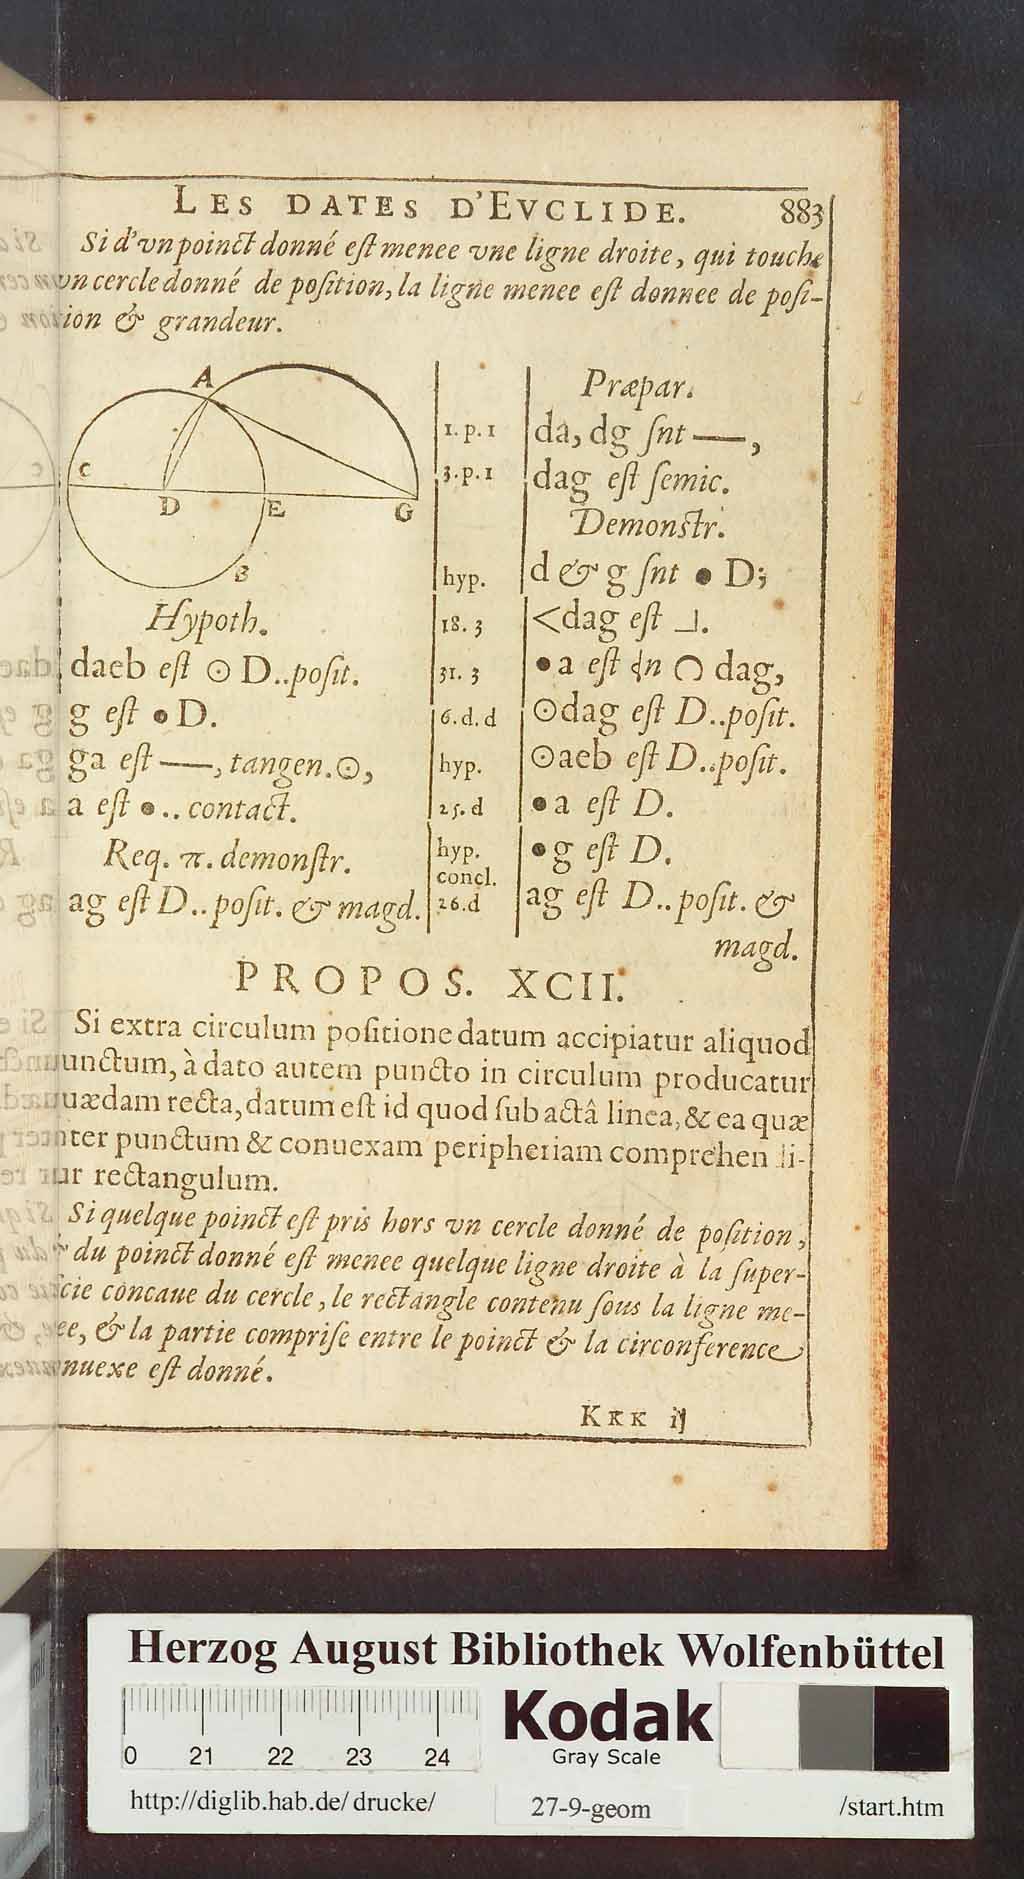 LES DATES D'EVCLIDE. 883
Si d'vn poinct donné est menee vne ligne droite, qui touche
vn cercle donné de position, la ligne menee est donnee de posi-
ion & grandeur.
A
C
D
E
G
B
Hypoth.
daeb est ⊙ D..posit.
g est • D.
ga est —, tangen. ⊙,
a est • .. contact.
Req. π. demonstr.
ag est D.. posit. & magd.
Præpar.
1. p. 1 da, dg snt —,
3. p. 1 dag est semic.
Demonstr.
hyp. d & g snt • D;
18. 3 <dag est ⅃.
31. 3 • a est dag,
6. d. d ⊙dag est D..posit.
hyp. ⊙aeb est D..posit.
25. d • a est D.
hyp. • g est D.
concl.
26. d ag est D..posit. &
magd.
PROPOS. XCII.
Si extra circulum positione datum accipiatur aliquod
unctum, à dato autem puncto in circulum producatur
uædam recta, datum est id quod sub actâ linea, & ea quæ
nter punctum & conuexam peripheriam comprehendi-
ur rectangulum.
Si quelque poinct est pris hors vn cercle donné de position,
du poinct donné est menee quelque ligne droite à la super-
cie concaue du cercle, le rectangle contenu sous la ligne me-
ee, & la partie comprise entre le poinct & la circonference
nuexe est donné.
KKK ij
Herzog August Bibliothek Wolfenbüttel
0 21 22 23 24
Kodak
Gray Scale
http://diglib.hab.de/drucke/ 27-9-geom /start.htm